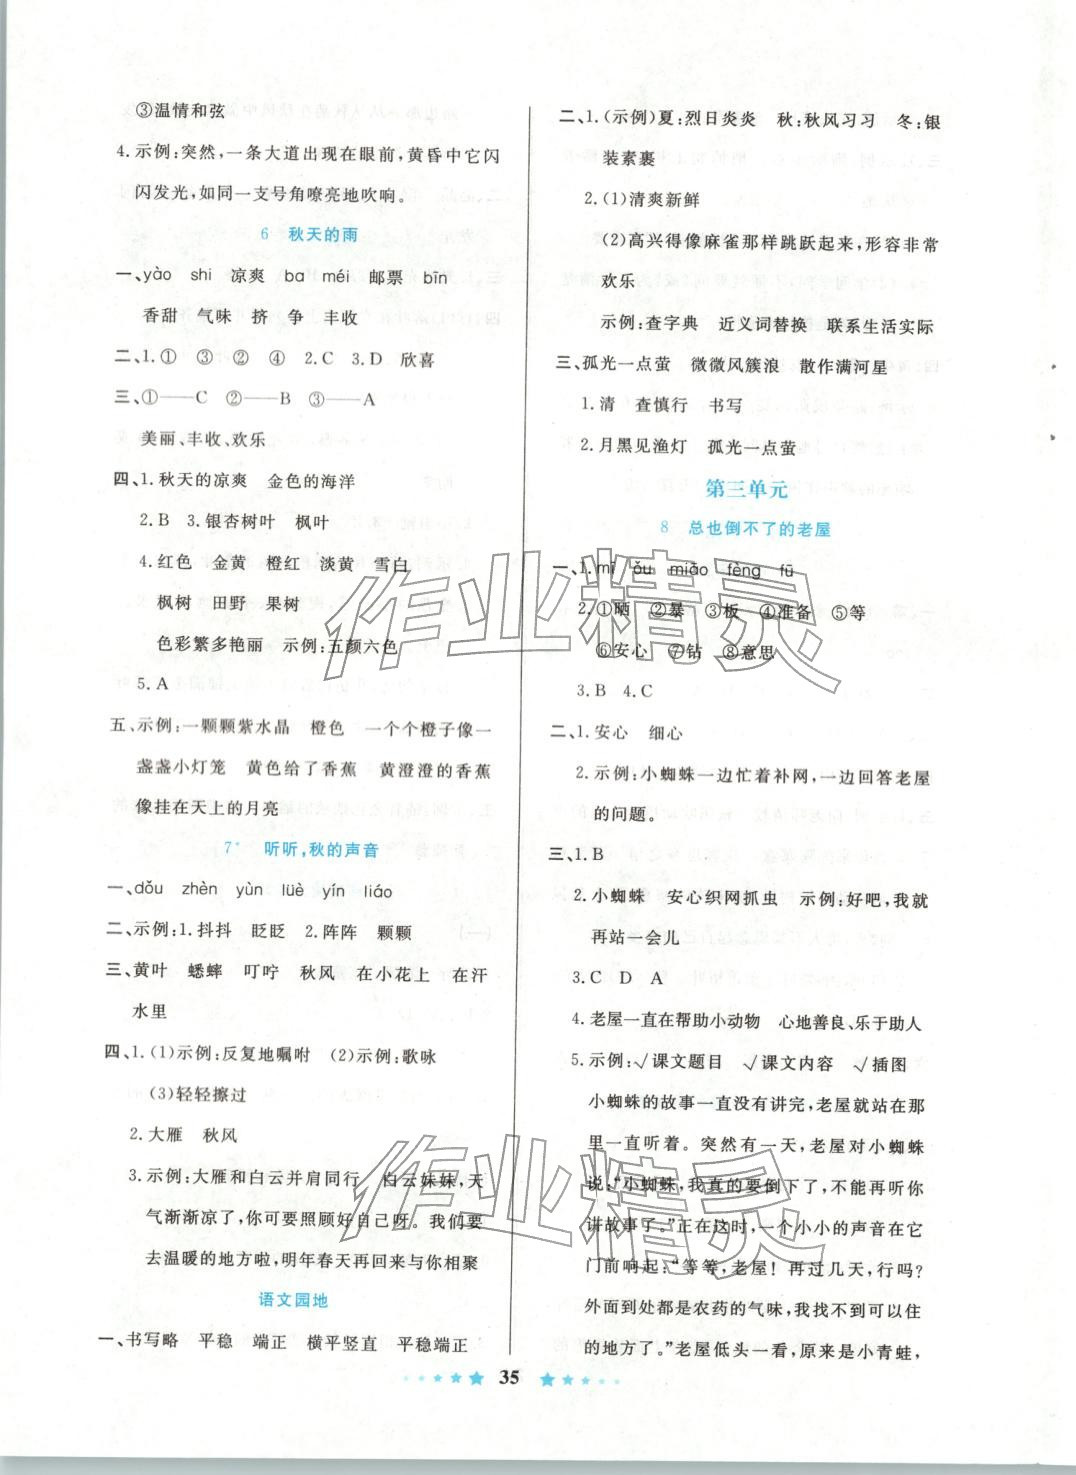 ③温情和弦
4. 示例:突然,一条大道出现在眼前,黄昏中它闪
闪发光,如同一支号角嘹亮地吹响。
6 秋天的雨
一、yào shi 凉爽 ba méi 邮票 bīn
香甜 气味 挤 争 丰收
二、1.① ③ ② ④ 2.C 3.D 欣喜
三、①——C ②——B ③——A
美丽、丰收、欢乐
四、1.秋天的凉爽 金色的海洋
2.B 3.银杏树叶 枫叶
4.红色 金黄 橙红 淡黄 雪白
枫树 田野 果树
色彩繁多艳丽 示例:五颜六色
5.A
五、示例:一颗颗紫水晶 橙色 一个个橙子像一
盏盏小灯笼 黄色给了香蕉 黄澄澄的香蕉
像挂在天上的月亮
7* 听听,秋的声音
一、dǒu zhèn yùn lüè yín liáo
二、示例:1.抖抖 眨眨 2.阵阵 颗颗
三、黄叶 蟋蟀 叮咛 秋风 在小花上 在汗
水里
四、1.(1)示例:反复地嘱咐 (2)示例:歌咏
(3)轻轻擦过
2.大雁 秋风
3.示例:大雁和白云并肩同行 白云妹妹,天
气渐渐凉了,你可要照顾好自己呀。我们要
去温暖的地方啦,明年春天再回来与你相聚
语文园地
一、书写略 平稳 端正 横平竖直 平稳端正
二、1.(示例)夏:烈日炎炎 秋:秋风习习 冬:银
装素裹
2.(1)清爽新鲜
(2)高兴得像麻雀那样跳跃起来,形容非常
欢乐
示例:查字典 近义词替换 联系生活实际
三、孤光一点萤 微微风簇浪 散作满河星
1.清 查慎行 书写
2.月黑见渔灯 孤光一点萤
第三单元
8 总也倒不了的老屋
一、1.mì ǒu miāo fèng fū
2.①晒 ②暴 ③板 ④准备 ⑤等
⑥安心 ⑦钻 ⑧意思
3.B 4.C
二、1.安心 细心
2.示例:小蜘蛛一边忙着补网,一边回答老屋
的问题。
三、1.B
2.小蜘蛛 安心织网抓虫 示例:好吧,我就
再站一会儿
3.C D A
4.老屋一直在帮助小动物 心地善良、乐于助人
5.示例:√课文题目 √课文内容 √插图
小蜘蛛的故事一直没有讲完,老屋就站在那
里一直听着。突然有一天,老屋对小蜘蛛
说:“小蜘蛛,我真的要倒下了,不能再听你
讲故事了。”正在这时,一个小小的声音在它
门前响起:“等等,老屋!再过几天,行吗?
外面到处都是农药的气味,我找不到可以住
的地方了。”老屋低头一看,原来是小青蛙,
35
作业精灵
作业精灵